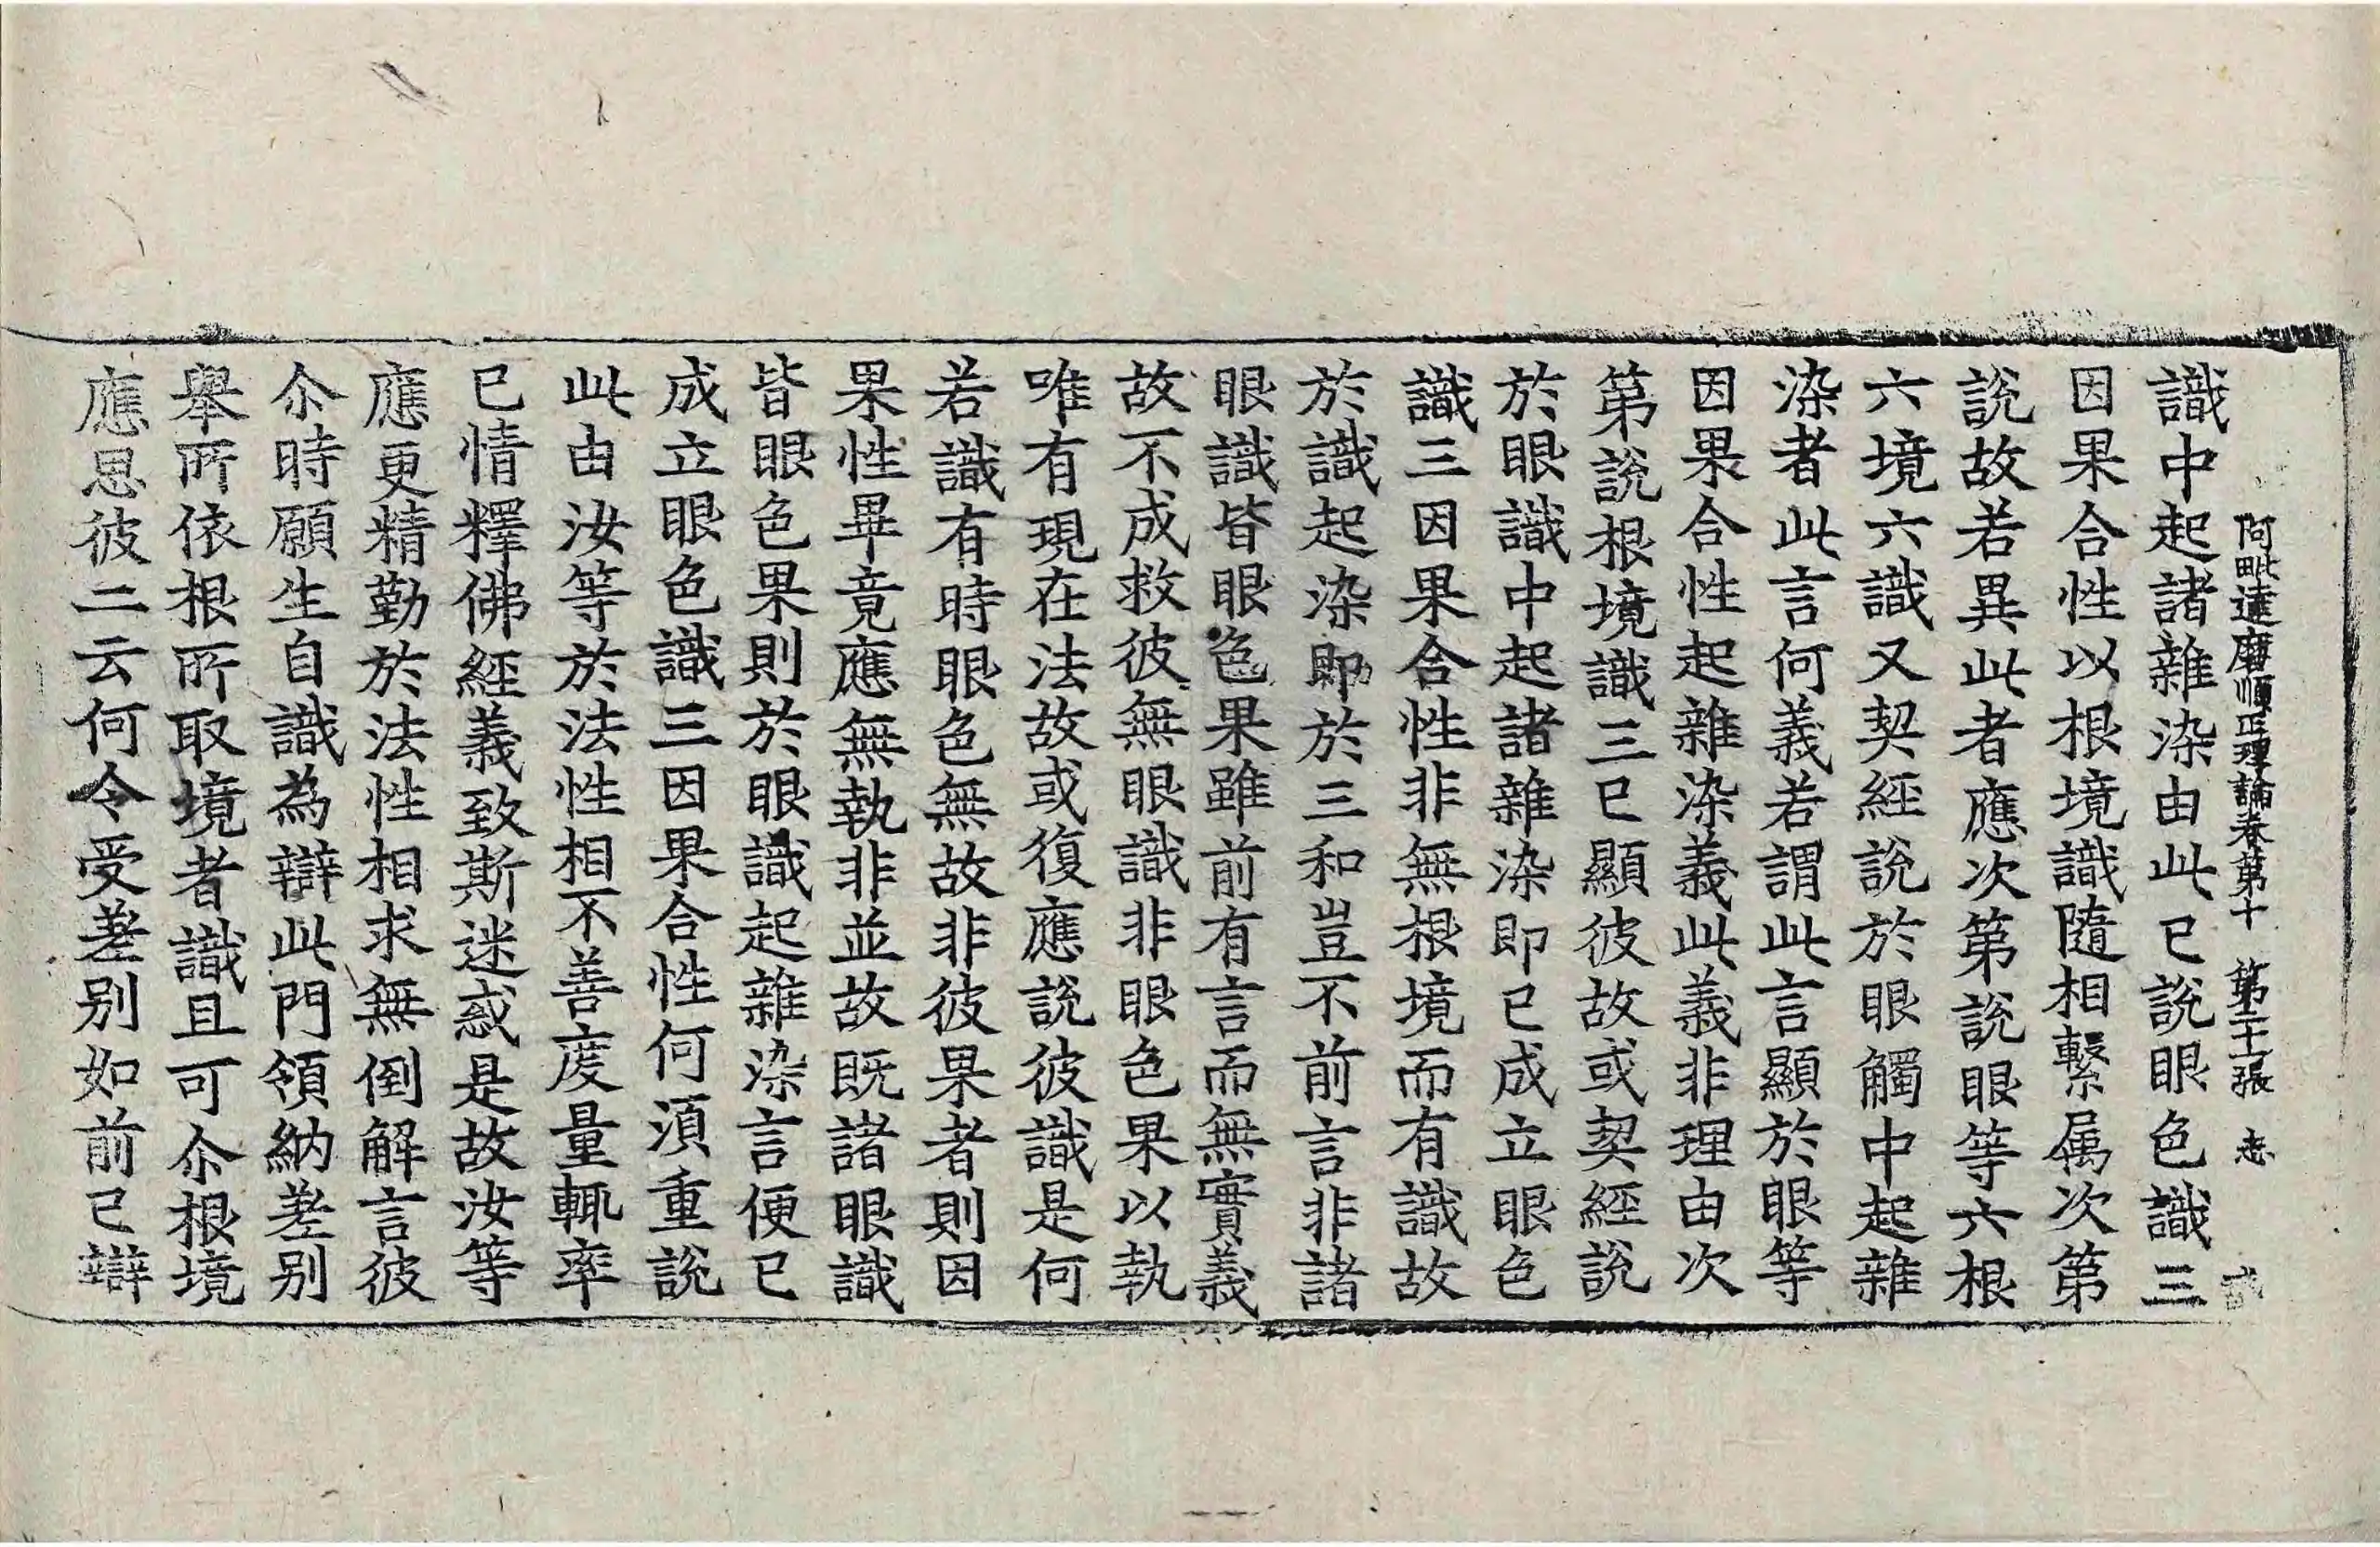 阿毗達磨順正理論卷第十 第二十張 志
識中起諸雜染由此已說眼色識三
因果合性以根境識隨相繫属次第
說故若異此者應次第說眼等六根
六境六識又契經說於眼觸中起雜
染者此言何義若謂此言顯於眼等
因果合性起雜染義此義非理由次
第說根境識三已顯彼故或契經說
於眼識中起諸雜染即已成立眼色
識三因果合性非無根境而有識故
於識起染即於三和豈不前言非諸
眼識皆眼色果雖前有言而無實義
故不成救彼無眼識非眼色果以執
唯有現在法故或復應說彼識是何
若識有時眼色無故非彼果者則因
果性畢竟應無執非並故既諸眼識
皆眼色果則於眼識起雜染言便已
成立眼色識三因果合性何須重說
此由汝等於法性相不善度量輒率
已情釋佛經義致斯迷惑是故汝等
應更精勤於法性相求無倒解言彼
尒時願生自識為辯此門領納差别
舉所依根所取境者識且可尒根境
應思彼二云何令受差别如前已辯